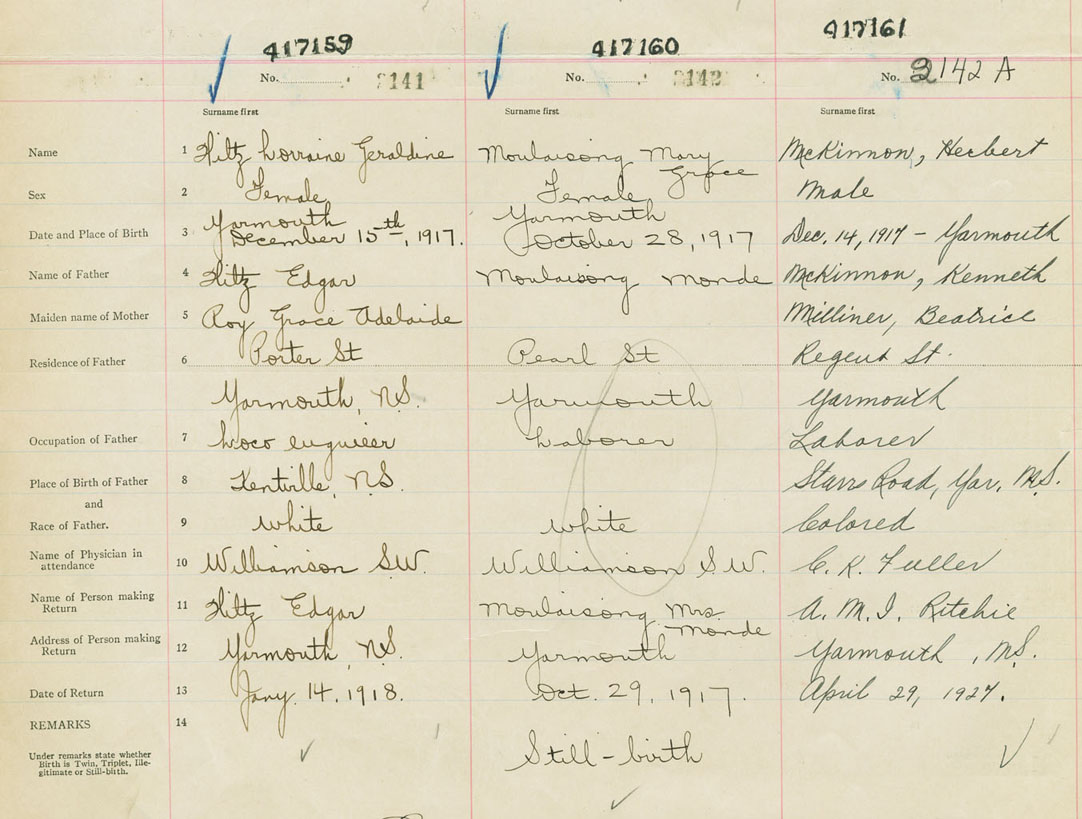 417159 417160 417161
No. 2141 No. 2142 No. 2142 A
Surname first Surname first Surname first
Name 1 Hiltz Lorraine Geraldine Moulaisong Mary Grace McKinnon, Herbert
Sex 2 Female Female Male
Date and Place of Birth 3 Yarmouth December 15th, 1917. Yarmouth October 28, 1917 Dec. 14, 1917 - Yarmouth
Name of Father 4 Hiltz Edgar Moulaisong Monde McKinnon, Kenneth
Maiden name of Mother 5 Roy Grace Adelaide Milliner, Beatrice
Residence of Father 6 Porter St Pearl St Regent St.
Yarmouth, N.S. Yarmouth Yarmouth
Occupation of Father 7 Loco engineer Laborer Laborer
Place of Birth of Father 8 Kentville, N.S. Starrs Road, Yar, N.S.
and
Race of Father. 9 White White Colored
Name of Physician in attendance 10 Williamson S.W. Williamson S.W. C. K. Fuller
Name of Person making Return 11 Hiltz Edgar Moulaisong Mrs. Monde A. M. I. Ritchie
Address of Person making Return 12 Yarmouth, N.S. Yarmouth Yarmouth, N.S.
Date of Return 13 Jany. 14, 1918. Oct. 29, 1917. April 29, 1927.
REMARKS 14
Under remarks state whether
Birth is Twin, Triplet, Ille-
gitimate or Still-bith.
Still-birth